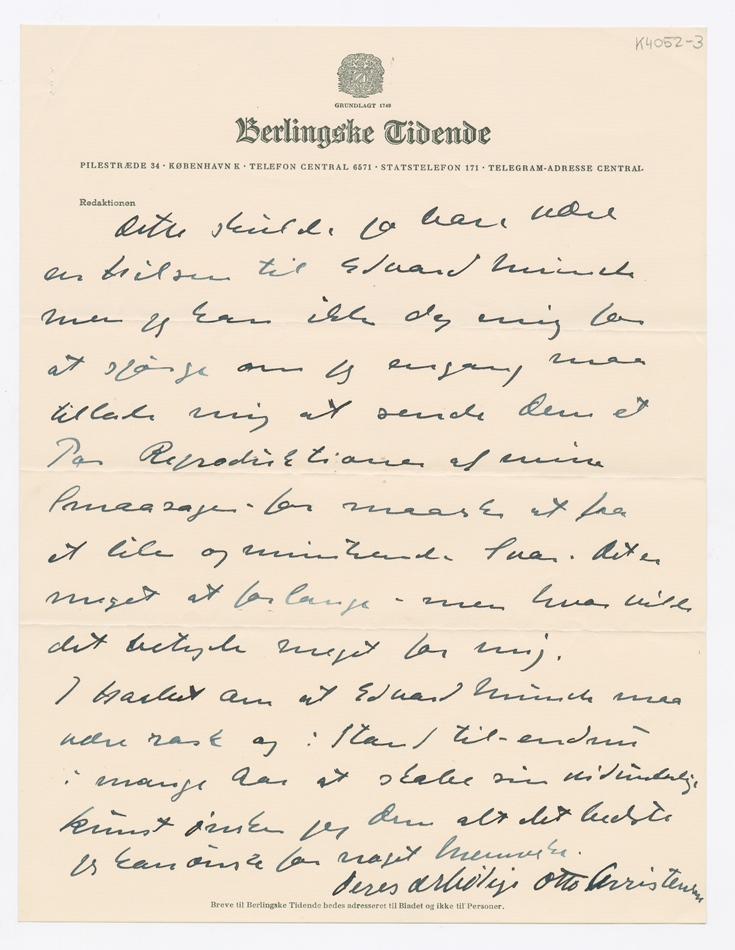 K4052-3
GRUNDLAGT 1749
Berlingske Tidende
PILESTRÆDE 34 · KØBENHAVN K · TELEFON CENTRAL 6571 · STATSTELEFON 171 · TELEGRAM-ADRESSE CENTRAL
Redaktionen
Dette skulde jo bare være
en Hilsen til Edvard Munch
men jeg kan ikke dy mig for
at spørge om jeg engang maa
tillade mig at sende Dem et
Par Reproduktioner af mine
Smaasager - for maaske at faa
et lille opmuntrende Svar. Det er
meget at forlange - men hvor vilde
det betyde meget for mig.
I Haabet om at Edvard Munch maa
være rask og i Stand til endnu
i mange Aar at skabe sin vidunderlige
Kunst ønsker jeg Dem alt det bedste
jeg kan ønske for noget Menneske.
Deres ærbødige Otto Christensen
Breve til Berlingske Tidende bedes adresseret til Bladet og ikke til Personer.